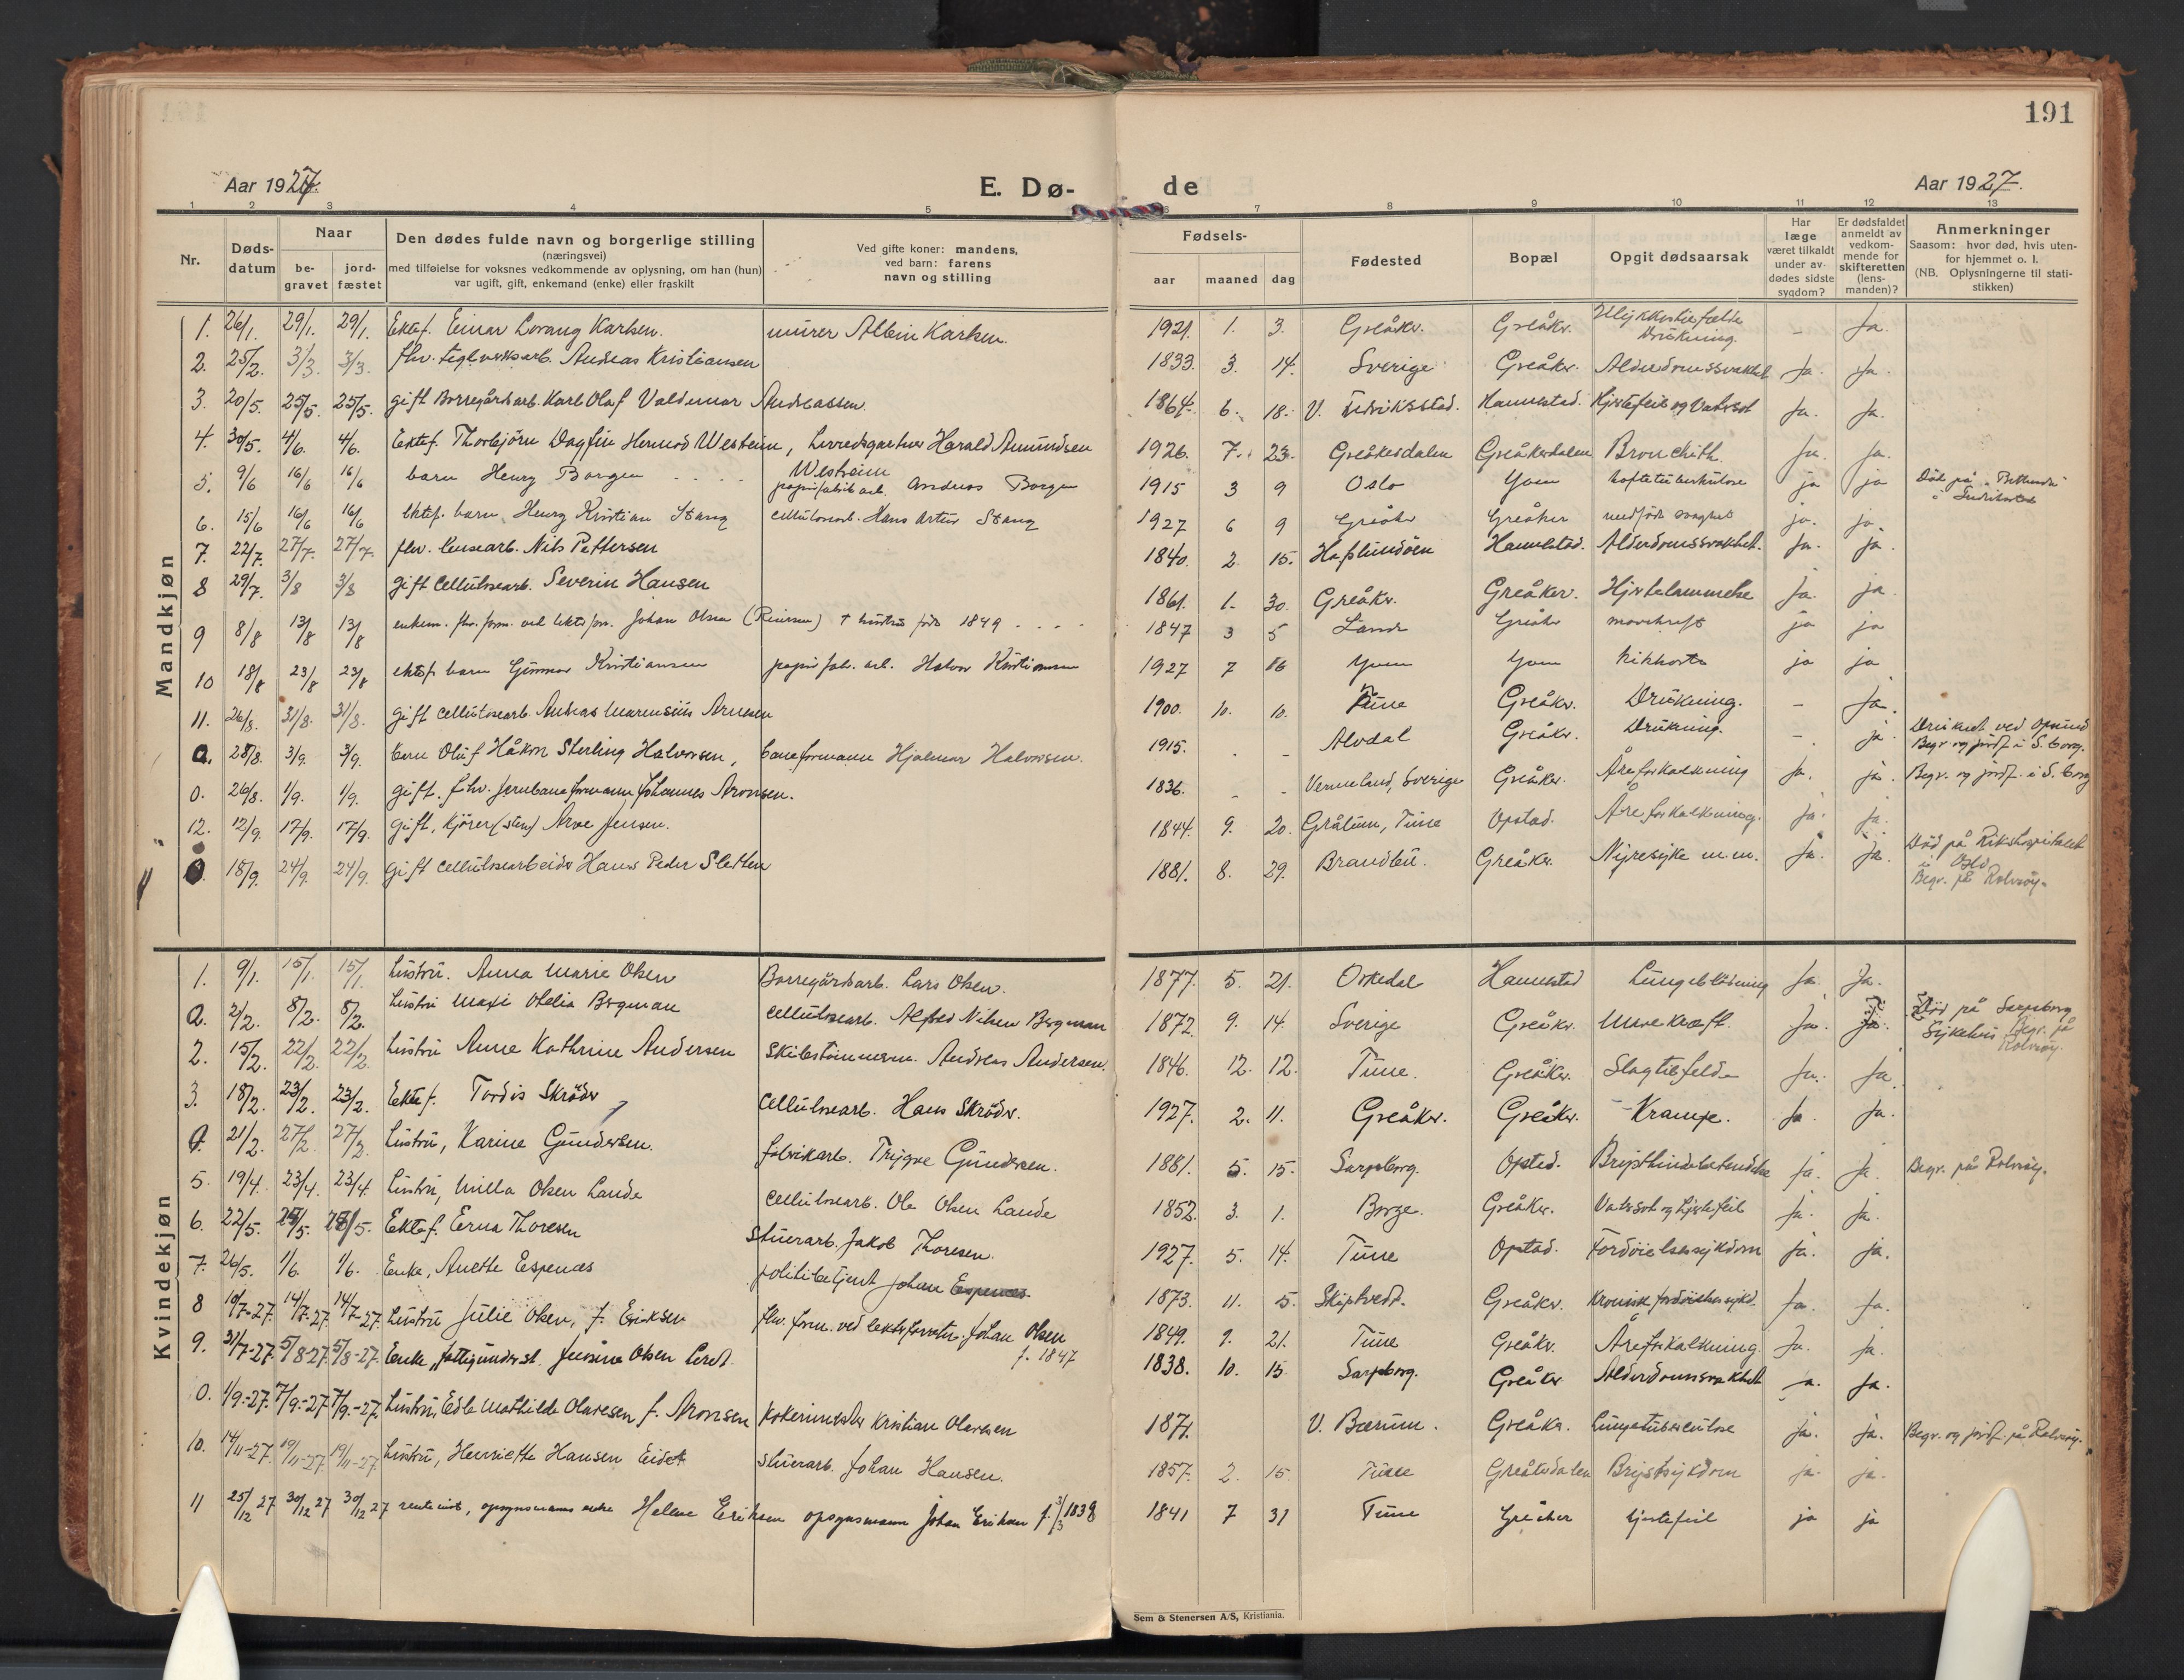 191
Aar 1927.
E. Dø-
de
Aar 1927.
1 2 3 4 5 6 7 8 9 10 11 12 13
Nr.
Døds-datum
Naar
be-gravet
jord-fæstet
Den dødes fulde navn og borgerlige stilling
(næringsvei)
med tilføielse for voksnes vedkommende av oplysning, om han (hun)
var ugift, gift, enkemand (enke) eller fraskilt
Ved gifte koner: mandens,
ved barn: farens
navn og stilling
Fødsels-
aar maaned dag
Fødested
Bopæl
Opgit dødsaarsak
Har læge været tilkaldt under av-dødes sidste sygdom?
Er dødsfaldet anmeldt av vedkom-mende for skifteretten (lens-manden)?
Anmerkninger
Saasom: hvor død, hvis uten-
for hjemmet o. l.
(NB. Oplysningerne til stati-
stikken)
Mandkjøn
1. 26/1. 29/1. 29/1. Ektef. Einar Lorang Karlsen. murer Albin Karlsen. 1921. 1. 3. Greåker. Greåker. Ulykkestilfælde Drukning. – Ja.
2. 25/2. 3/3. 3/3. fhv. teglverksarb. Andreas Kristiansen 1833. 3. 14. Sverige Greåker. Alderdomssvakhet Ja. Ja.
3. 20/5. 25/5. 25/5. gift Borregårdsarb. Karl Olaf Valdemar Andreassen. 1864. 6. 18. V. Fredriksstad. Hannestad. Hjertefeil og Vatersot Ja. Ja.
4. 30/5. 4/6. 4/6. Ektef. Thorbjörn Dagfin Hermod Westeim, herredsgartner Harald Amundsen Westeim 1926. 7. 23. Greåkerdalen Greåkerdalen Bronchith. Ja. Ja.
5. 9/6 16/6 16/6 barn Henry Borgen papirfabrikarb. Andreas Borgen 1915 3 9 Oslo Yven hoftetuberkulose ja ja Död på
6. 15/6 16/6 16/6 ektef. barn Henry Kristian Stang cellulosearb. Hans Artur Stang 1927 6 9 Greåker Greåker medfödt svaghet ja. ja.
7. 22/7. 27/7. 27/7. fhv. lensearb. Nils Pettersen 1840. 2. 15. Hafslundöen Hannestad. Alderdomssvakhet. Ja. ja.
8 29/7. 3/8 3/8 gift Cellulosearb. Severin Hansen 1861. 1. 30. Greåker. Greåker. Hjertelammelse Ja. ja
9 8/8 13/8 13/8 enkem. fhv. form. ved lekteforr. Johan Olsen (Reiersen) † hustru född 1849 1847 3 5 Lande Greåker mavekræft ja ja
10 18/8 23/8 23/8 ektef. barn Gunnar Kristiansen papirfabr. arb. Halvor Kristiansen 1927 7 16 Yven Yven kikhoste ja ja
11. 26/8. 31/8. 31/8. gift cellulosearb. Andreas Marensius Arnesen 1900. 10. 10. Tune Greåker. Drukning. – Ja.
0. 28/8. 3/9. 3/9. barn Oluf Håkon Sterling Halvorsen, baneformann Hjalmar Halvorsen. 1915. – – Alvdal Greåker. Drukning. – ja Druknet ved Opsund Begr. og jordf. i S.borg.
0. 26/8. 1/9. 1/9. gift. fhv. Jernbaneformann Johannes Aronsen. 1836. – – Vermeland, Sverige Greåker. Åreforkalkning Ja. ja. Begr. og jordf. i S.borg
12. 12/9. 17/9. 17/9. gift, kjörer (sten) Arve Jensen. 1844. 9. 20. Grålum, Tune Opstad. Åreforkalkning. Ja. ja.
0. 18/9. 24/9. 24/9. gift cellulosearbeider Hans Peder Sletten 1881. 8. 29. Brandbu. Greåker. Nyresyke m.m. Ja. ja. Död på Rikshospitalet i Oslo Begr. på Rolvsöy.
Kvindekjøn
1. 9/1. 15/1. 15/1. hustru. Anna Marie Olsen Borregårdsarb. Lars Olsen. 1877. 5. 21. Orkedal Hannestad Lungeblödning Ja. Ja.
0. 2/2. 8/2. 8/2. hustru Maxi Otelia Bergman cellulosearb. Alfred Nilsen Bergman 1872. 9. 14. Sverige Greåker. Mavekræft. Ja. ja. Död på Sarpsborg Sykehus Begr. på Rolvsöy.
2. 15/2. 22/2. 22/2. hustru Anne Kathrine Andersen Skibstömmerm. Andreas Andersen. 1846. 12. 12. Tune. Greåker. Slagtilfelde Ja. Ja.
3. 18/2. 23/2. 23/2. Ektef. Tordis Skröder Cellulosearb. Hans Skröder. 1927. 2. 11. Greåker. Greåker. Krampe. Ja. Ja.
0. 21/2. 27/2. 27/2. hustru, Karine Gundersen. fabrikarb. Trygve Gundersen. 1881. 5. 15. Sarpsborg. Opstad. Brysthindebetendelse ja. Ja. Begr. på Rolvsöy.
5. 19/4. 23/4. 23/4. hustru, Milla Olsen Lande cellulosearb. Ole Olsen Lande 1852. 3. 1. Borge. Greåker. Vatersot og hjertefeil Ja. Ja.
6. 22/5. 28/5. 28/5. Ektef. Erna Thoresen stuerarb. Jakob Thoresen. 1927. 5. 14. Tune Opstad. Fordöielsessykdom Ja. ja.
7. 26/5. 1/6. 1/6. Enke, Anette Espenæs politibetjent Johan Espenæs. 1873. 11. 5. Skiptvedt. Greåker. Kronisk fordöielsessykd. Ja. Ja.
8 10/7-27. 14/7-27 14/7-27. hustru Julie Olsen, f. Eriksen fhv. form. ved lekteforretn. Johan Olsen f. 1847 1849. 9. 21. Tune Greåker. Åreforkalkning. Ja. Ja.
9. 31/7-27. 5/8-27. 5/8-27. Enke, fattigunderst. Jensine Olsen Leret. 1838. 10. 15 Sarpsborg. Greåker Alderdomssvakhet ja. Ja.
0. 1/9.-27. 7/9.-27 7/9.-27. hustru, Edle Mathilde Olavesen f. Aronsen Kokerimester Kristian Olavesen 1871. V. Bærum. Greåker. Lungetuberculose ja. ja. Begr. og jordf. på Rolvsöy.
10. 14/11-27. 19/11-27. 19/11-27 hustru, Henriette Hansen Eidet stuerarb. Johan Hansen. 1857. 2. 15. Tune Greåkerdalen Brystsykdom ja. ja.
11 25/12 27 30/12 27 30/12 27 rentenist, opsynsmanns enke Helene Eriksen opsynsmann Johan Eriksen f. 3/3 1838 1841 7 31 Tune Greåker hjertefeil ja ja
Sem & Stenersen A/S, Kristiania.